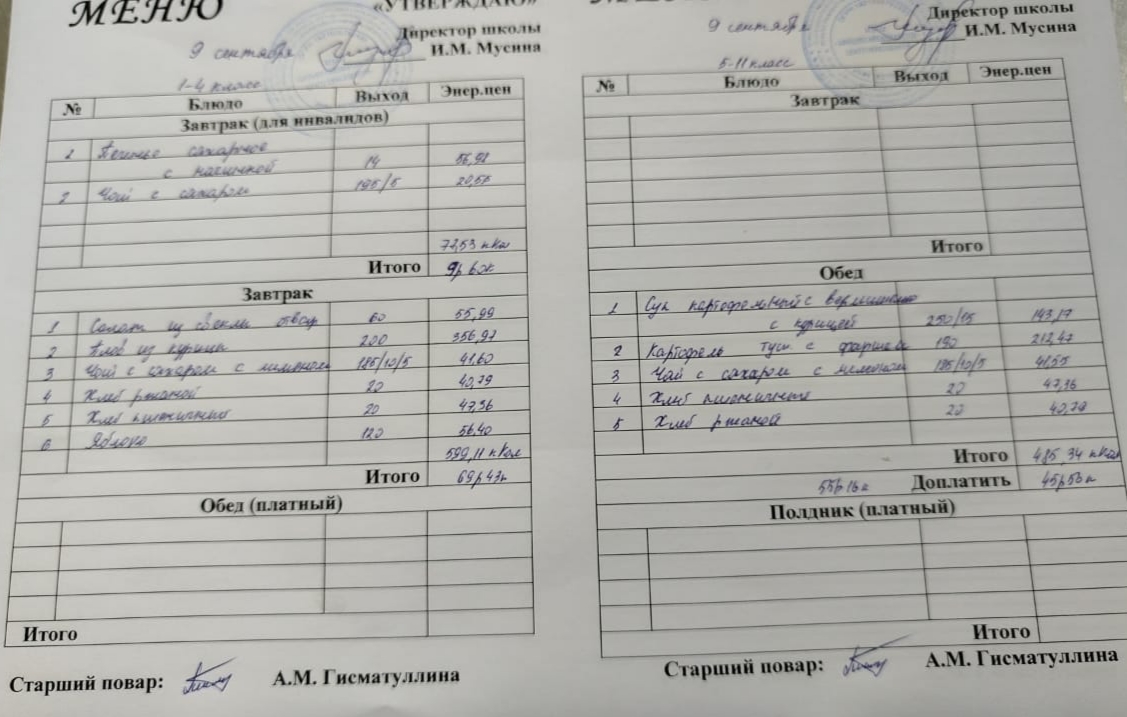 МЕНЮ
«УТВЕРЖДАЮ»
Директор школы
9 сентября И.М. Мусина
1-4 класс
№ Блюдо Выход Энер.цен
Завтрак (для инвалидов)
1 Печенье сахарное
с начинкой 14 56,98
2 Чай с сахаром 195/5 20,55
77,53 кКал
Итого 9р 60к
Завтрак
1 Салат из свеклы отвар 60 55,99
2 Плов из курицы 200 356,97
3 Чай с сахаром с лимоном 185/10/5 41,60
4 Хлеб ржаной 20 40,79
5 Хлеб пшеничный 20 47,36
6 Яблоко 120 56,40
599,11 кКал
Итого 69р 43к
Обед (платный)
Итого
Старший повар: А.М. Гисматуллина
Директор школы
9 сентября И.М. Мусина
5-11 класс
№ Блюдо Выход Энер.цен
Завтрак
Итого
Обед
1 Суп картофельный с вермишелью
с курицей 250/15 143,17
2 Картофель туш. с фаршем 190 212,47
3 Чай с сахаром с лимоном 185/10/5 41,55
4 Хлеб пшеничный 20 47,36
5 Хлеб ржаной 20 40,79
Итого 485,34 кКал
55р 16к Доплатить 45р53к
Полдник (платный)
Итого
Старший повар: А.М. Гисматуллина